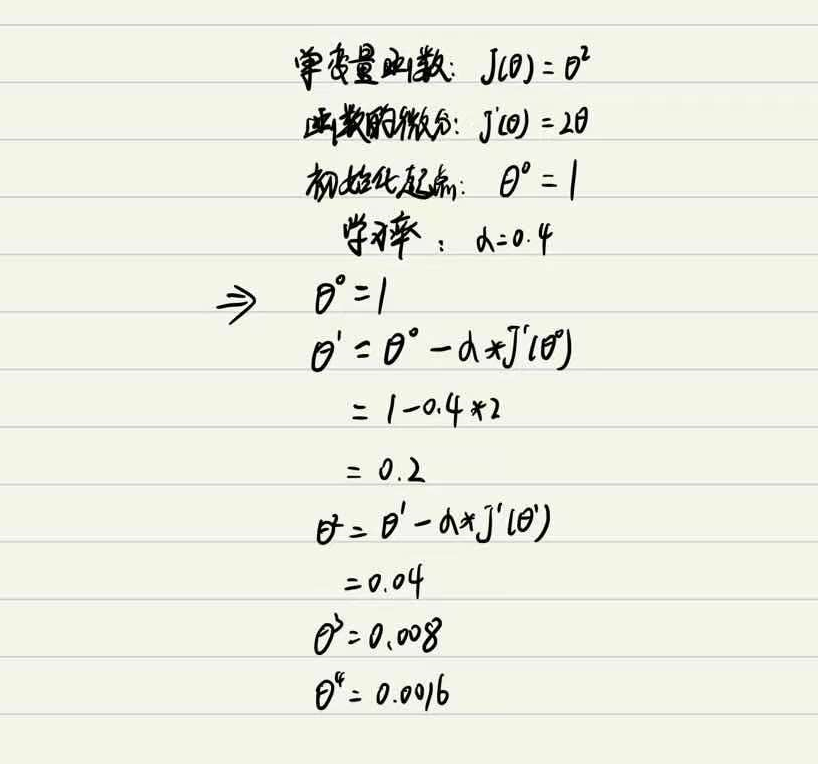 单变量函数: J(θ) = θ²
函数的微分: J'(θ) = 2θ
初始化起点: θ⁰ = 1
学习率: α=0.4
⇒ θ⁰ = 1
θ¹ = θ⁰ - α*J'(θ⁰)
= 1-0.4*2
= 0.2
θ² = θ¹ - α*J'(θ¹)
= 0.04
θ³ = 0.008
θ⁴ = 0.0016